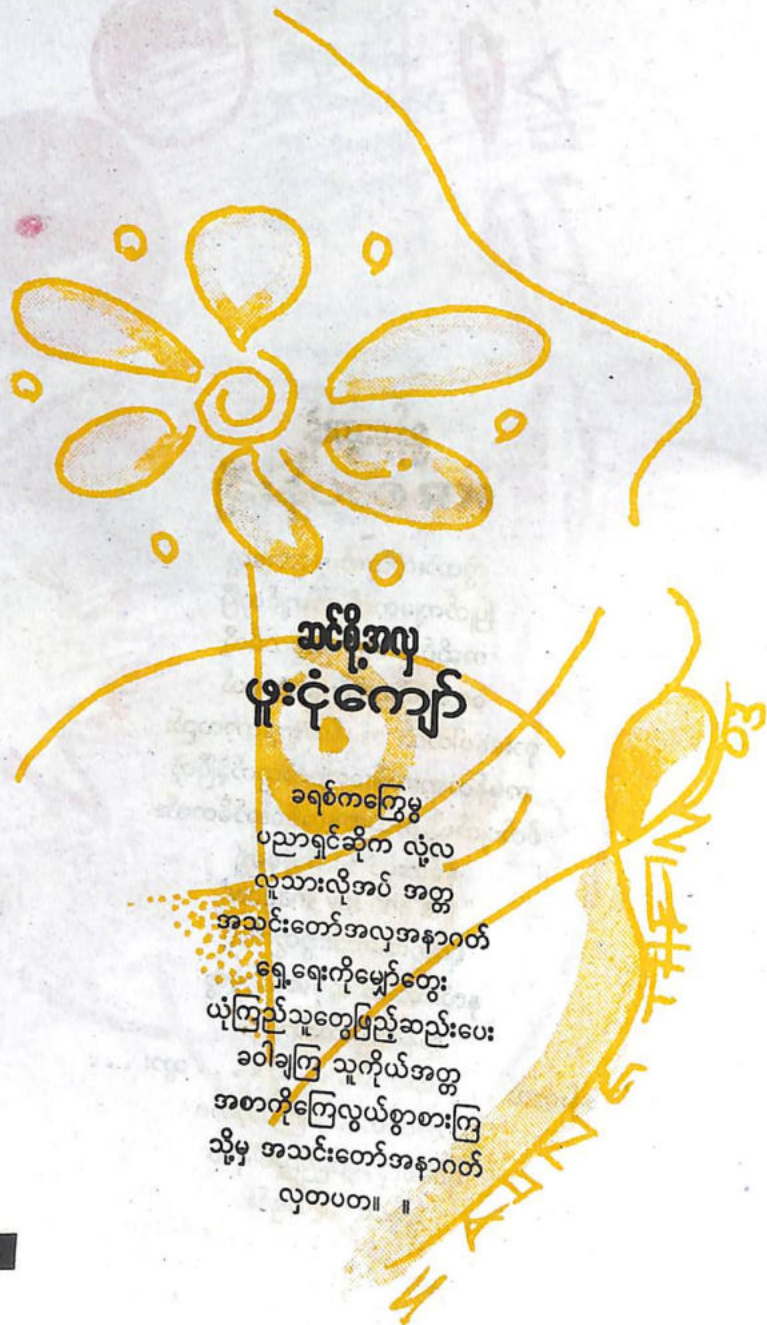 ဆင်စို့အလှ
ဖူးငုံကျော်
ခရစ်ကကြွေမွ
ပညာရှင်ဆိုက လုံ့လ
လူသားလိုအပ် အတ္တ
အသင်းတော်အလှအနာဂတ်
ရှေ့ရေးကိုမျှော်တွေး
ယုံကြည်သူတွေဖြည့်ဆည်းပေး
ခဝါချကြ သူကိုယ်အတ္တ
အစာကိုကြေလွယ်စွာစားကြ
သို့မှ အသင်းတော်အနာဂတ်
လှတပတ။ ။